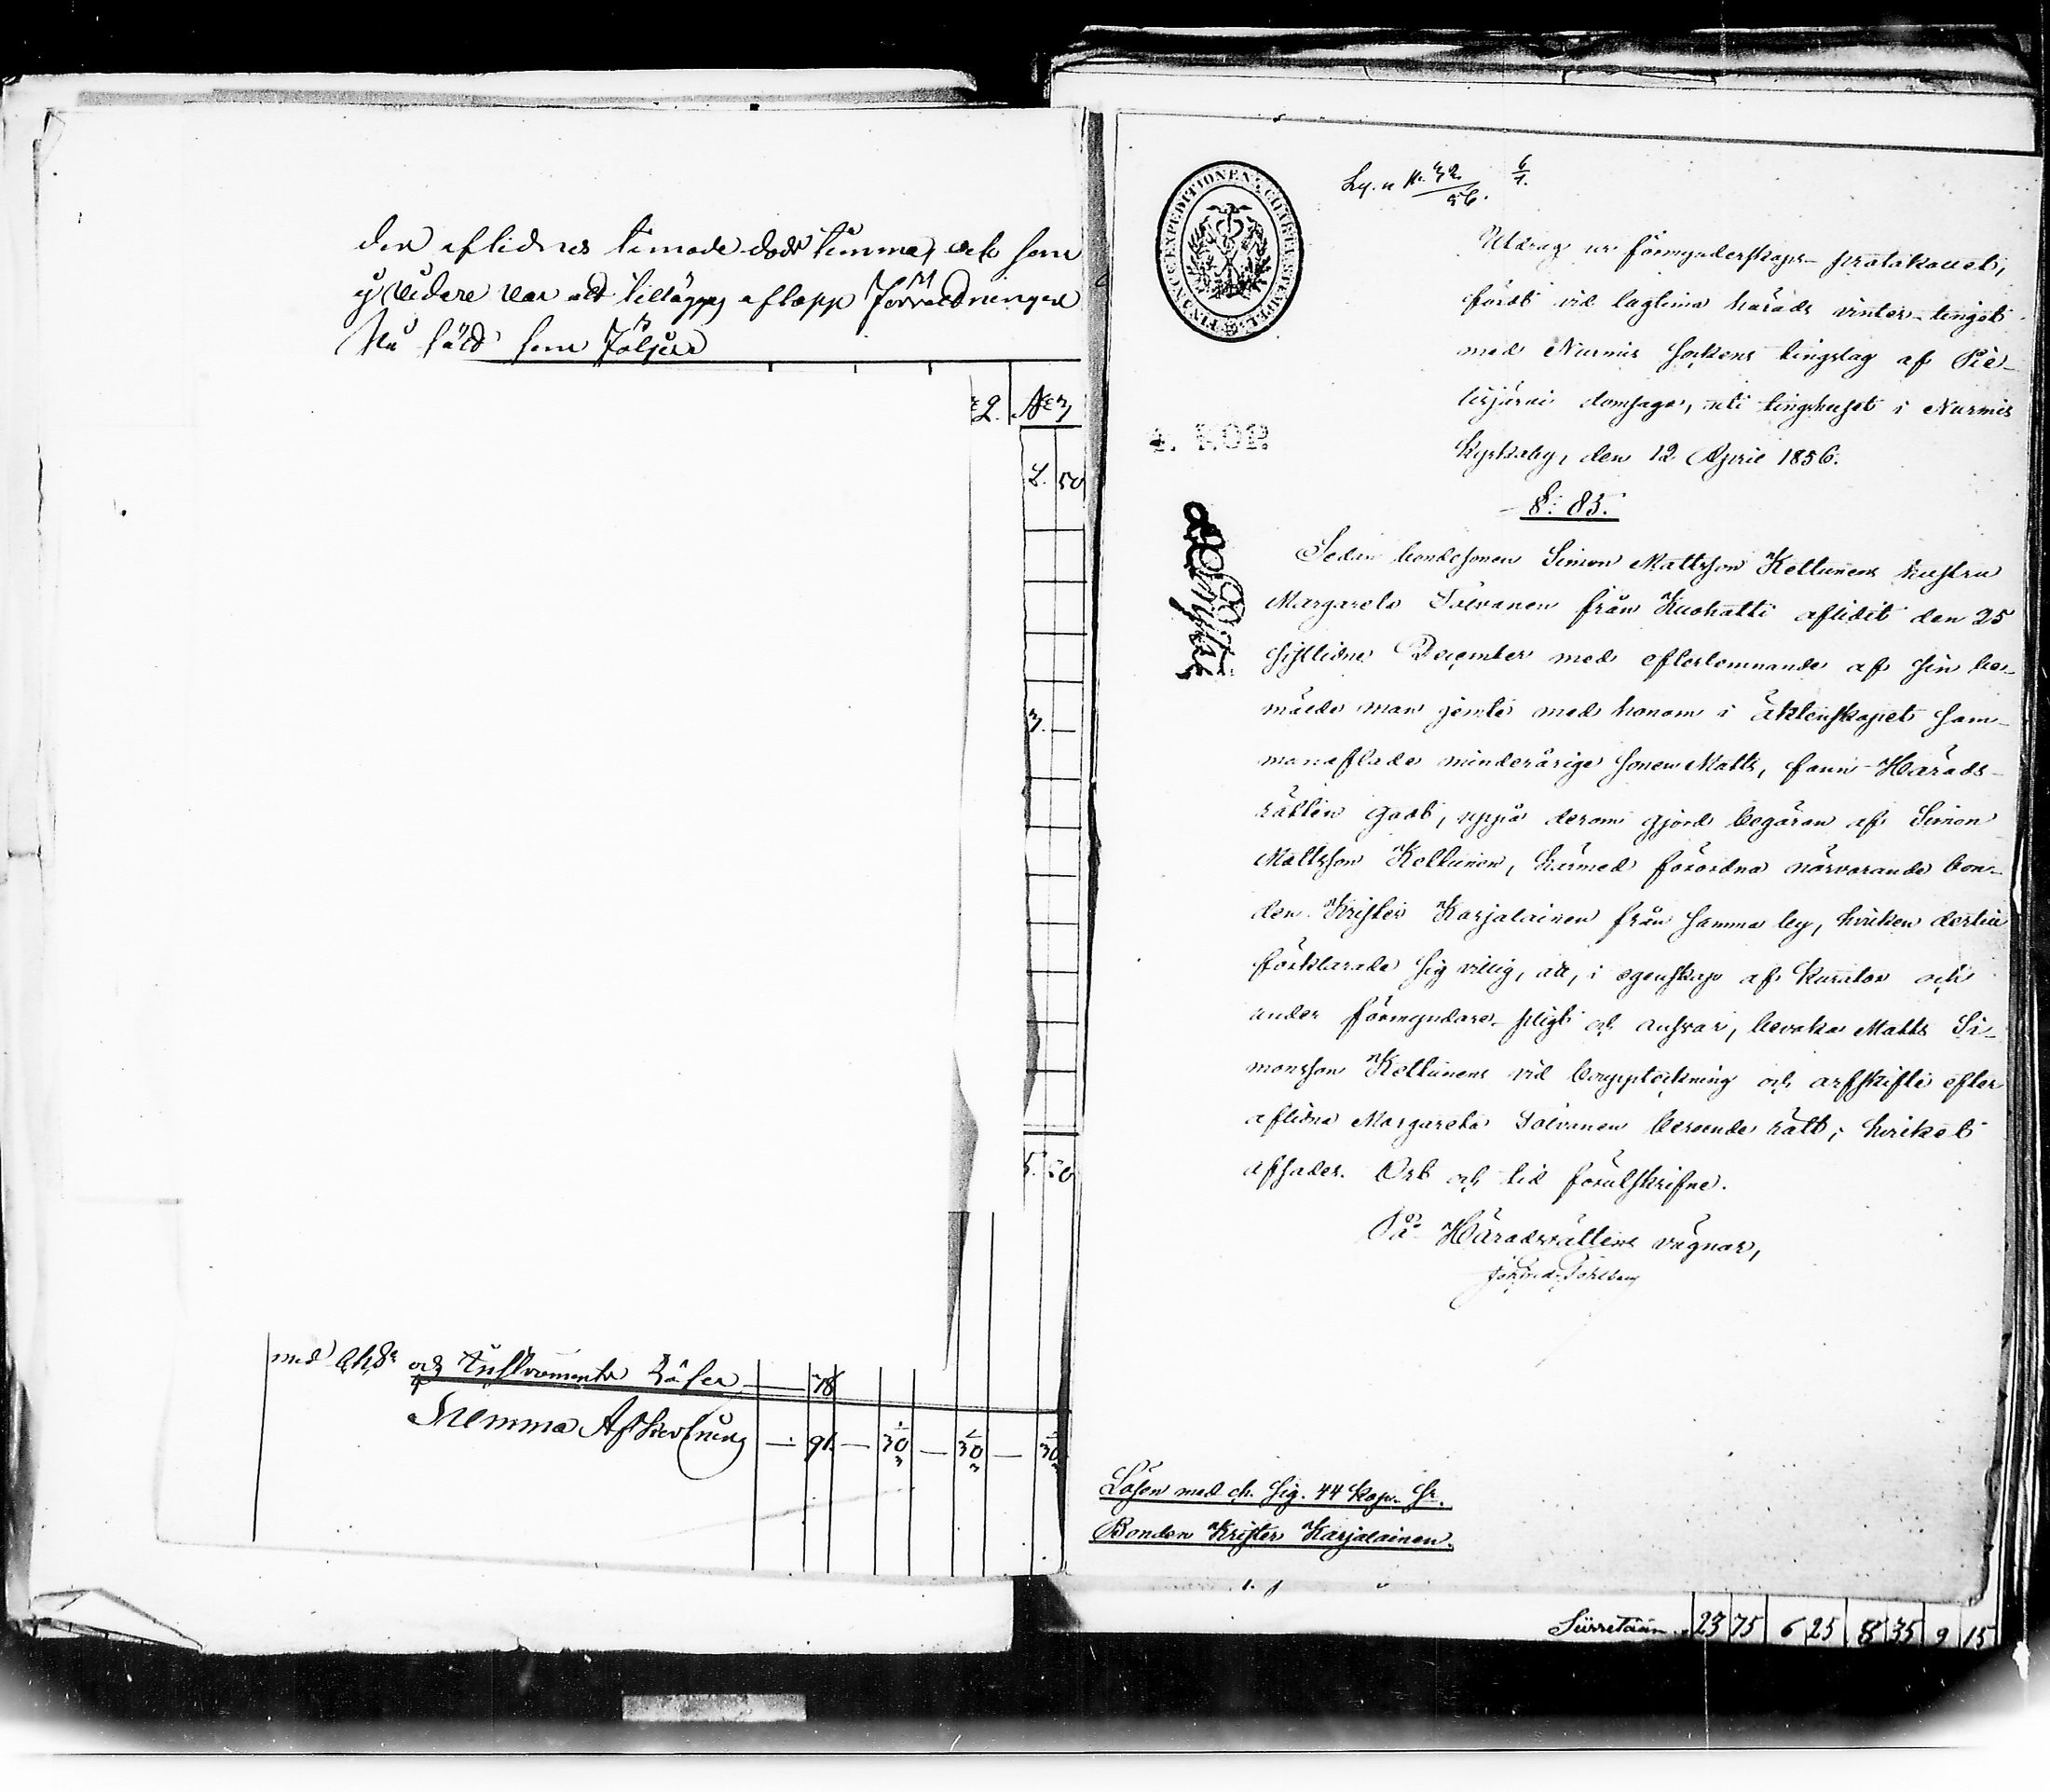 den aflidnes timade döds timma, och som
ej vidare var att tillägga aflopp Förrättningen
Nu såld som Följer
L. 50
3. —
5. 50
med ch Sr och Instruments Lösen — 78
Summa Afskrifning — 91 — 30 — 30 — 30
FINANCE EXPEDITIONENS CHARTÆ STEMPEL
4. KOP.
Utdrag ur förmynderskaps-protokollet,
fördt vid lagtima härads vinter-tinget
med Nurmis sockens tingslag af Pie-
lisjärvi domsaga, uti tingshuset i Nurmis
Kyrkoby, den 12 April 1856.
§: 85.
Sedan bondesonen Simon Mattsson Kettunens hustru
Margareta Tolvanen från Kuokatti aflidit den 25
sistlidne December med efterlemnande af sin be-
mälde man jemte med honom i äktenskapet sam-
manaflade minderårige sonen Matts, fann Härads-
rätten godt, uppå derom gjord begäran af Simon
Mattsson Kettunen, härmed förordna närvarande bon-
den Krister Karjalainen från samma by, hvilken dertill
förklarade sig villig, att, i egenskap af kurator och
under förmyndare-pligt och ansvar, bevaka Matts Si-
monsson Kettunens vid bouppteckning och arfskifte efter
aflidna Margareta Tolvanen beroende rätt; hvilket
afsades. Ort och tid förutskrifne.
På Häradsrättens vägnar,
Lösen med ch. sig. 44 kop. Sr.
Bonden Krister Karjalainen.
Siirretään 23 75 6 25 8 35 9 15